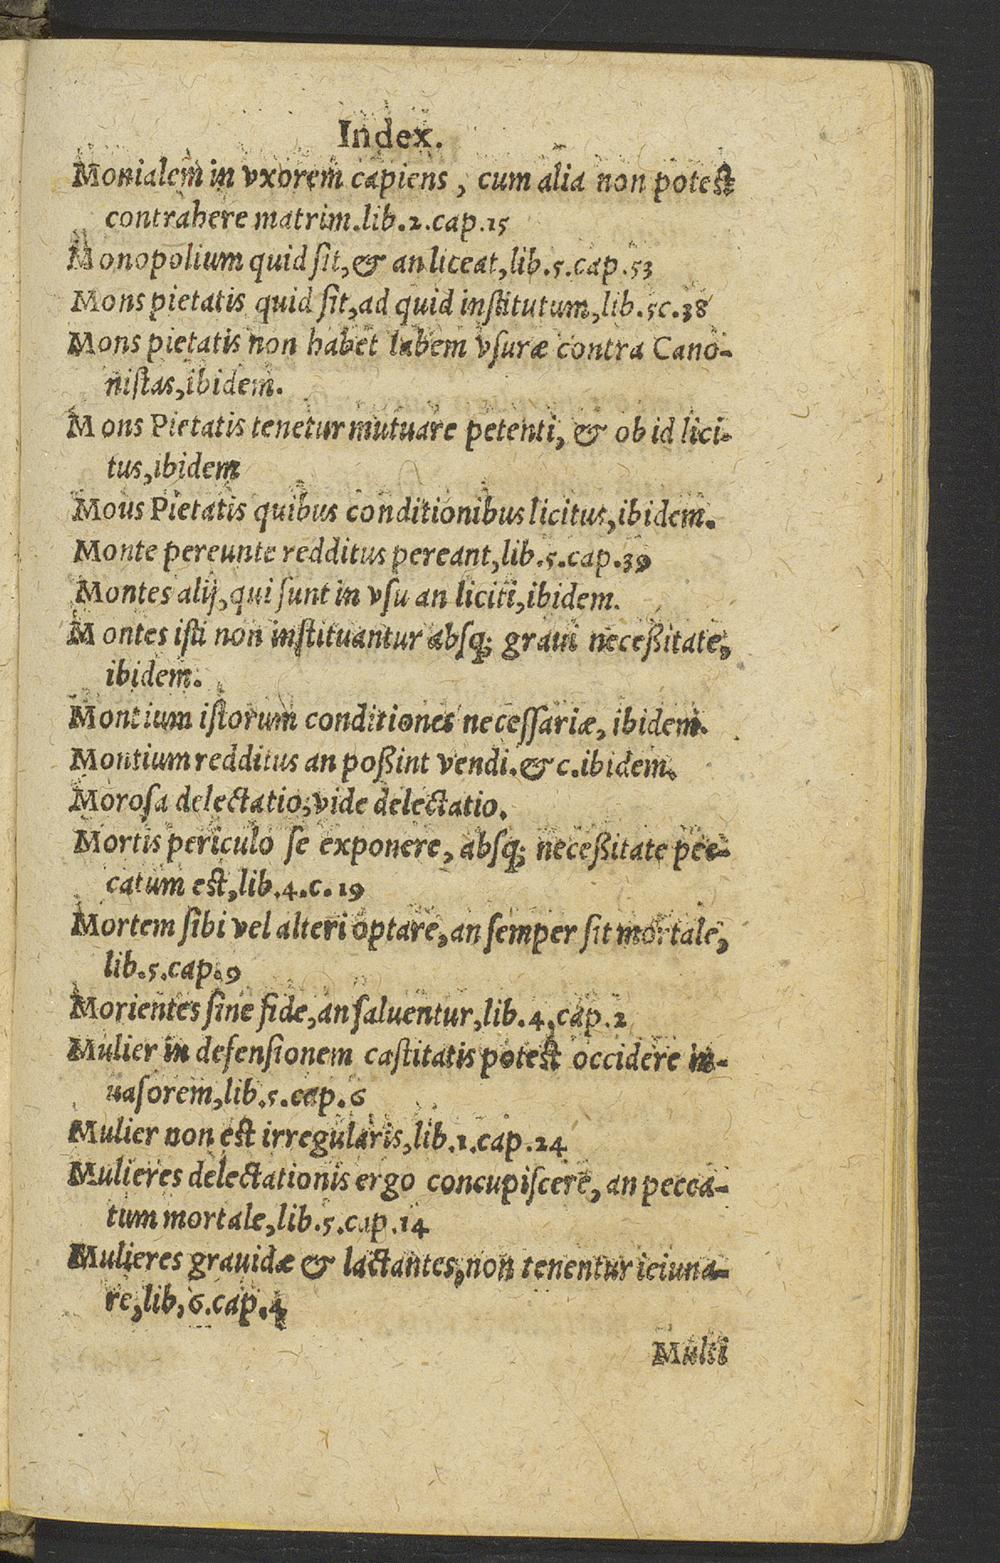 Index.
Monialem in vxorem capiens, cum alia non potest
contrahere matrim.lib.2.cap.15
Monopolium quid ſit,& an liceat,lib.5.cap.53
Mons pietatis quid ſit,ad quid inſtitutum,lib.5c.38
Mons pietatis non habet labem vſuræ contra Cano-
niſtas,ibidem.
Mons Pietatis tenetur mutuare petenti, & ob id lici-
tus,ibidem
Mous Pietatis quibus conditionibus licitus,ibidem.
Monte pereunte redditus pereant,lib.5.cap.39
Montes alij,qui ſunt in vſu an liciti,ibidem.
Montes iſti non inſtituantur abſq; graui neceßitate,
ibidem.
Montium iſtorum conditiones neceſſariæ, ibidem.
Montium redditus an poßint vendi.&c.ibidem.
Moroſa delectatio,vide delectatio.
Mortis periculo ſe exponere, abſq; neceßitate pec-
catum est,lib.4.c.19
Mortem ſibi vel alteri optare,an ſemper ſit mortale,
lib.5.cap.9
Morientes ſine fide,an ſaluentur,lib.4.cap.2
Mulier in defenſionem caſtitatis potest occidere in-
uaſorem,lib.5.cap.6
Mulier non est irregularis,lib.1.cap.24
Mulieres delectationis ergo concupiſcere, an pecca-
tum mortale,lib.5.cap.14
Mulieres grauidæ & lactantes,non tenentur ieiuna-
re,lib,6.cap.4
Multi